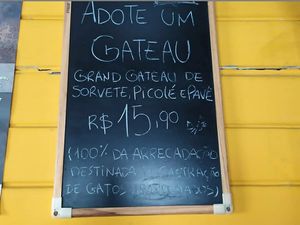 ADOTE UM
GATEAU
GRAND GATEAU DE
SORVETE, PICOLÉ E PAVÊ
R$ 15,90
(100% DA ARRECADAÇÃO
DESTINADA CASTRAÇÃO
DE GATOS)